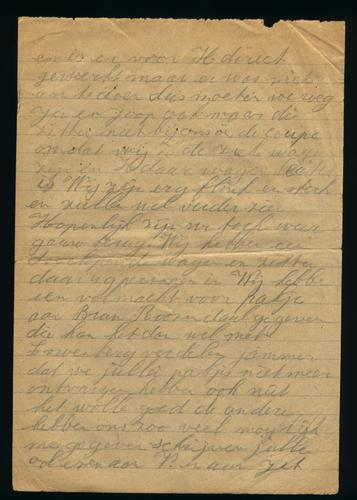 en is er voor H direct
gewerkt maar er was niets
aan te doen dus moeten we weg
en Joop ook maar die
zitten niet bij ons in de coupé
omdat wij in de zieke wagen
zijn
is Wij zijn erg flink en sterk
en zullen wel verder zien
Hopenlijk zijn we toch weer
gauw terug. Wij hebben een
wagen en zitten
daar ± 9 personen in Wij hebben
een volmacht voor pakje
aan Bram Roosendaal gegeven
die kan het dan wel met
Lowenberg verdelen jammer
dat we jullie pakjes niet meer
ontvangen hebben ook niet
het wolle goed de andere
hebben ons zoo veel mogelijk
mee gegeven schrijven jullie
ook even aan